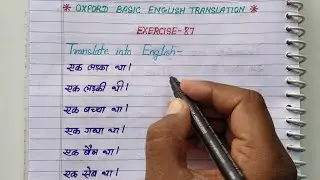 * OXFORD BASIC ENGLISH TRANSLATION *
EXERCISE-87
Translate into English-
एक लड़का था।
एक लड़की थी।
एक बच्चा था।
एक गधा था।
एक बैल था।
एक सेब था।